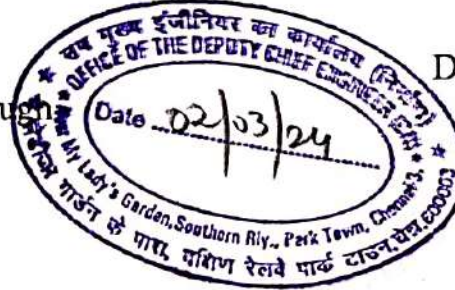 उप मुख्य इंजीनियर का कार्यालय (निर्माण)
OFFICE OF THE DEPUTY CHIEF ENGINEER
Date 02/03/24
My Lady's Garden, Southern Rly., Park Town, Chennai-3.
गार्डन के पास, दक्षिण रेलवे पार्क टाउन, चेन्नई, 600003
ugh
D